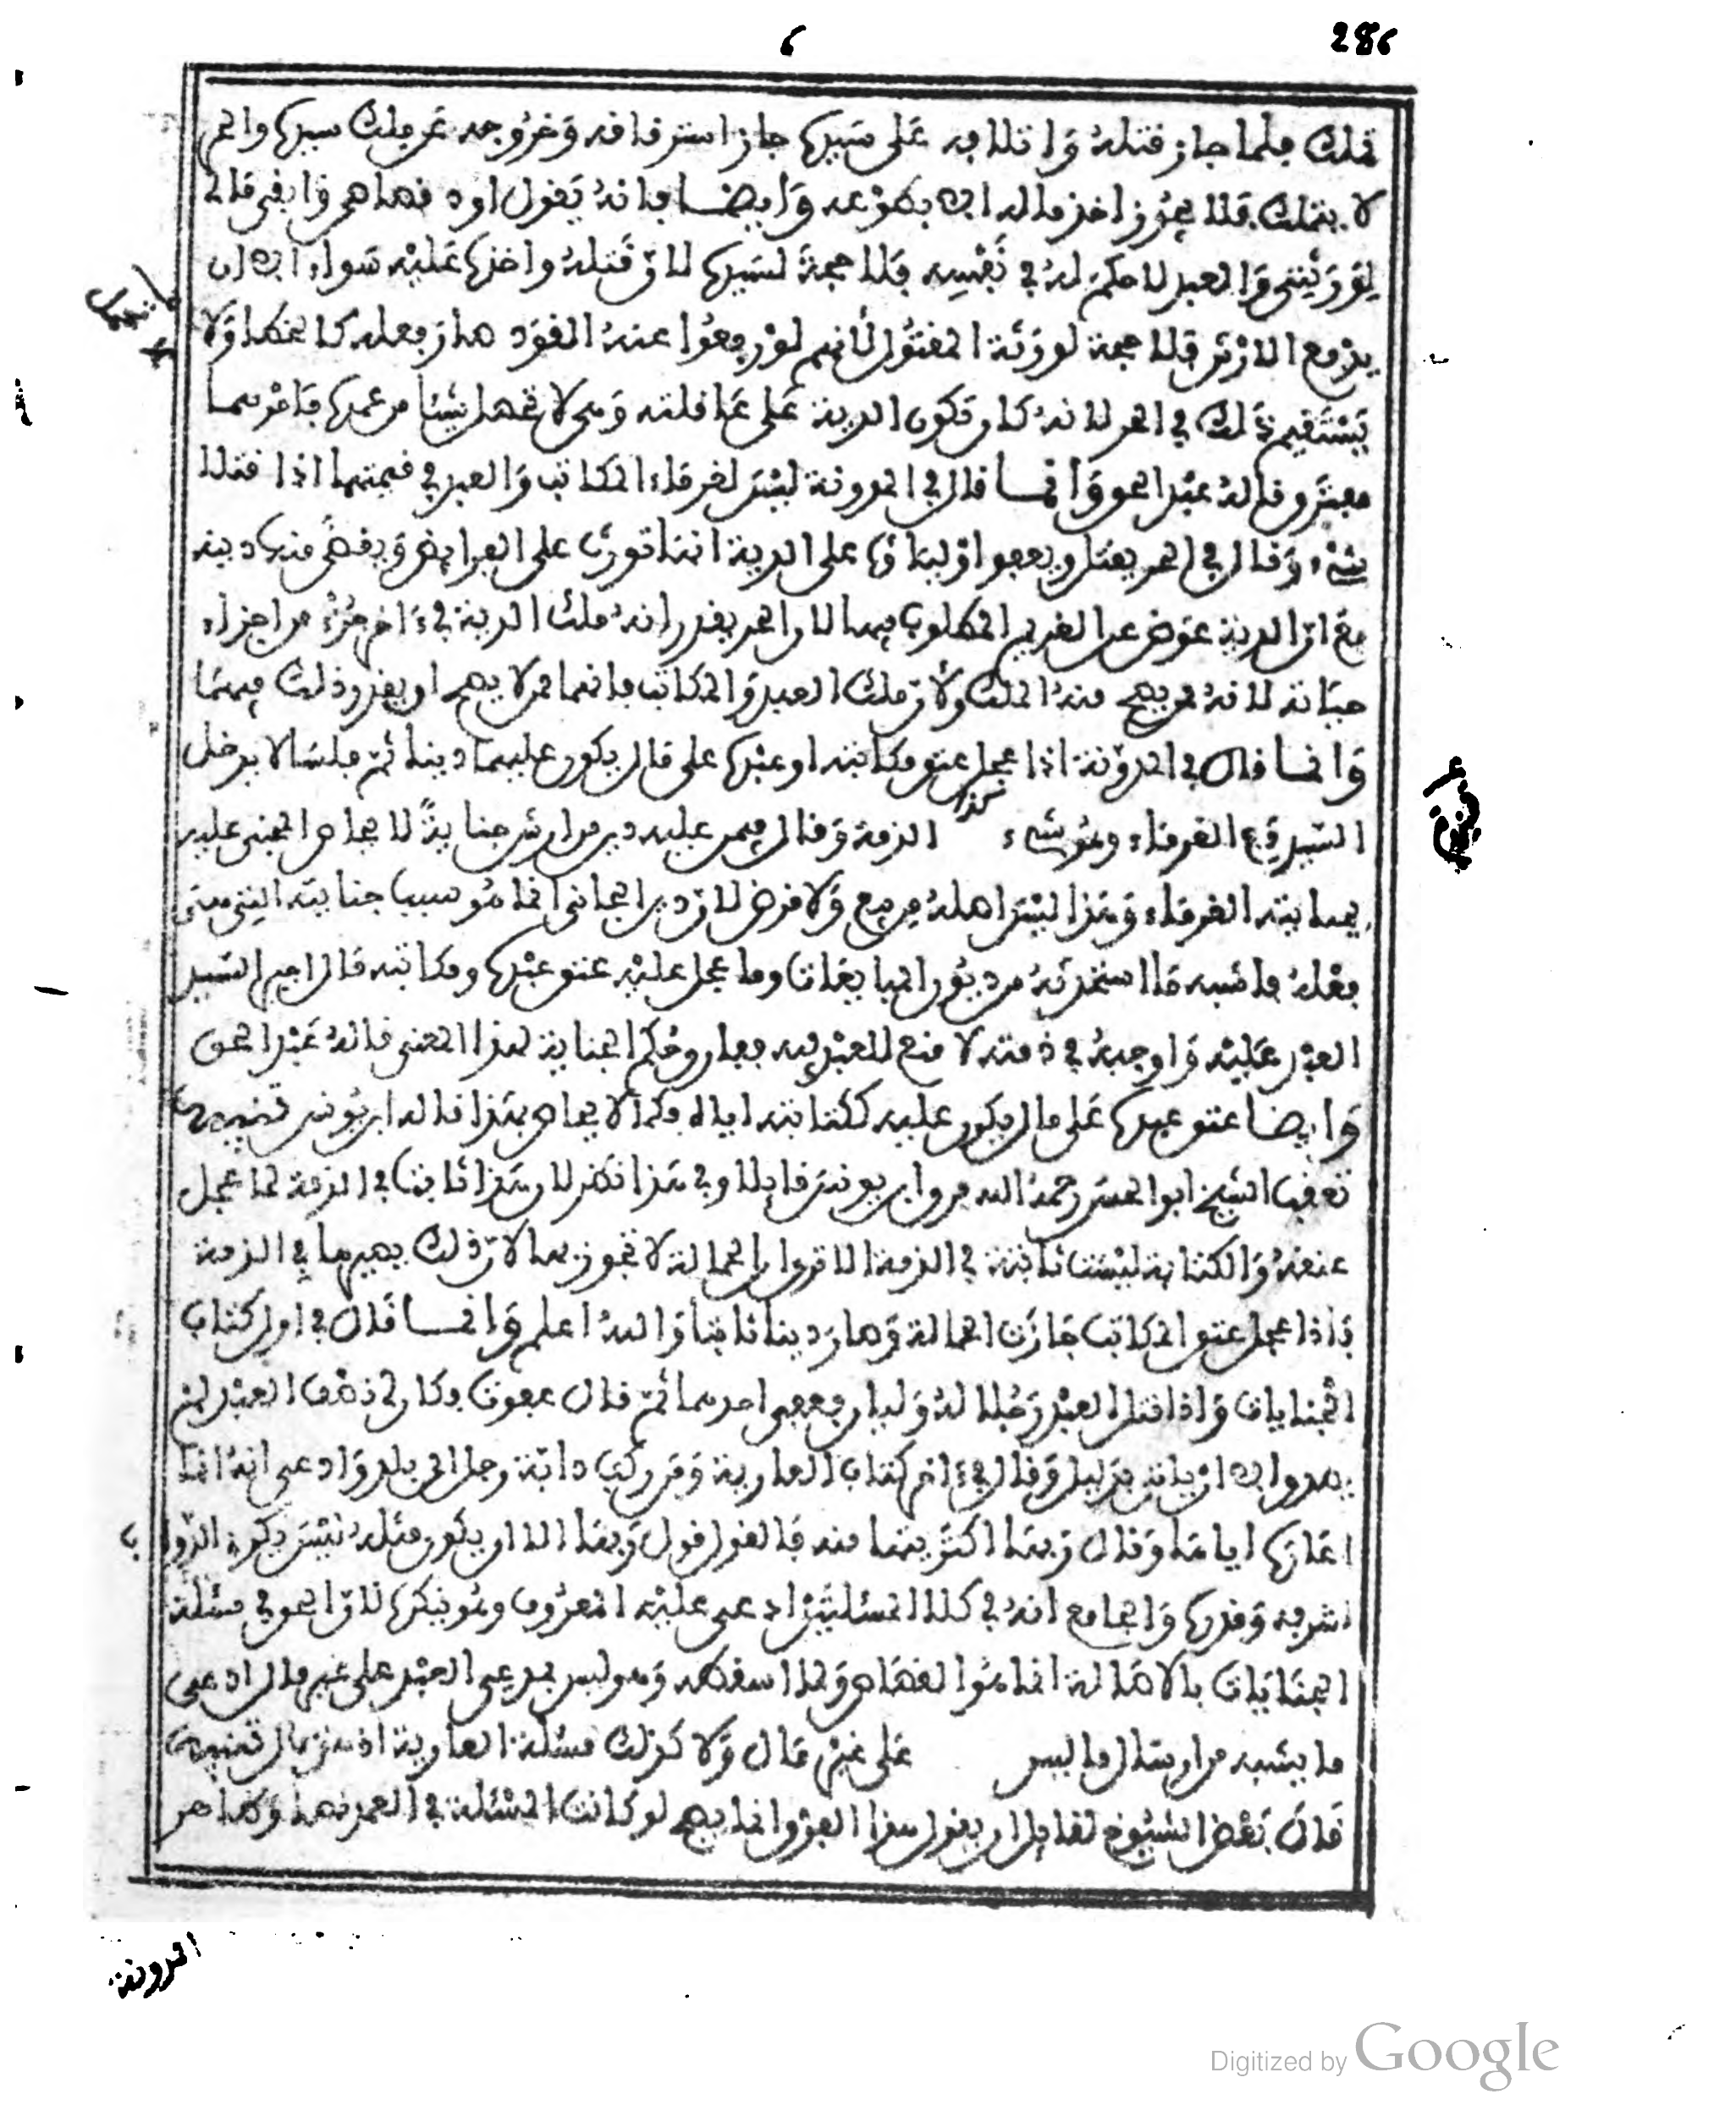 286
6
تملك فلما جاز قتله واتلافه على سيده جاز استرقاقه وخروجه عن ملك سيده والحر
لا يتملك فلا يجوز اخذ ماله الا بطوعه وايضا فانه يقول اود قصاصي وابقي مالي
لورثتي والعبد لا حكم له في نفسه فلا حجة لسيده لان قتله واخذه عليه سواء الا ان
يدفع الارش فلا حجة لورثة المقتول لأنهم لو رفعوا عنه القود صار فعله كالخطا ولا
يستقيم ذلك في الحر لانه كان تكون الدية على عاقلته وهي لا تحمل شيئا من عمده فامرهما
مفترق قاله عبد الحق وانما قال في المدونة ليس لغرماء المكاتب والعبد في قيمتهما اذا قتلا
شيء وقال في الحر يقتل ويعفو اولياؤه على الدية انها تورث على الفرايض ويقضى منها دينه
مع ان الدية عوض عن الغريم المطلوب فيهما لان الحر يقدر انه ملك الدية في ءاخر جزء من اجزاء
حياته لانه ممن يصح منه الملك ولأن ملك العبد والمكاتب فانهما ممن لا يصح او يقدر ذلك فيهما
وانما قال في المدونة اذا عجل عتق مكاتبه او عبده على مال يكون عليهما دينا ثم فلسا لا يدخل
السيد مع الغرماء وهو شيء كذا الذمة وقال فيمن عليه دين من ارش جناية لا يحاص المجني عليه
بجنايته الغرماء وهذا ليس اصله من بيع ولا قرض لان دين الجاني انما هو سبب جنايته التي هي
فعله فاشبه ما استحدثه من ديون المبايعات وما عجل عليه عتق عبده ومكاتبه مال اجبر السيد
العبد عليه واوجبه في ذمته لا منع للعبد فيه ففارق حكم الجناية لهذا المعنى قاله عبد الحق
وايضا عتق عبده على مال يكون عليه ككتابته اياه فكما لا يحاص بهذا قاله ابن يونس تنبيه
تعقب الشيخ ابو الحسن رحمه الله فرق ابن يونس قايلا وفي هذا نظر لان هذا ثابت في الذمة لما عجل
عتقه والكتابة ليست ثابتة في الذمة الا ترى ان الحمالة لا تجوز بها لان ذلك يصيرها في الذمة
فاذا عجل عتق المكاتب جازت الحمالة وصار دينا ثابتا والله اعلم وانما قال في اول كتاب
الجنايات واذا قتل العبد رجلا له وليان فعفى احدهما ثم قال عفوت وكان لي نصف العبد لم
يصدق الا ان ياتي بدليل وقال في ءاخر كتاب العارية ومن ركب دابة رجل الى بلد وادعى انه انما
اعاره اياها وقال ربها اكتريتها منه فالقول قول ربها الا ان يكون مثله ليس يكري الدواب
لشرفه وقدره والجامع انه في كلا المسئلتين ادعى عليه المعروف وهو ينكره لان الحق في مسئلة
الجنايات بالاصالة انما هو القصاص ولما اسقطه وهو ليس بمدعي العبد على غير مال ادعى
ما يشبه من ارسال ما ليس على غير مال ولا كذلك مسئلة العارية اذ هذا مال تنبيه
قال بعض الشيوخ لقايل ان يقول هذا الفرق انما يصح لو كانت المسئلة في العمد نصا وظاهر
المدونة